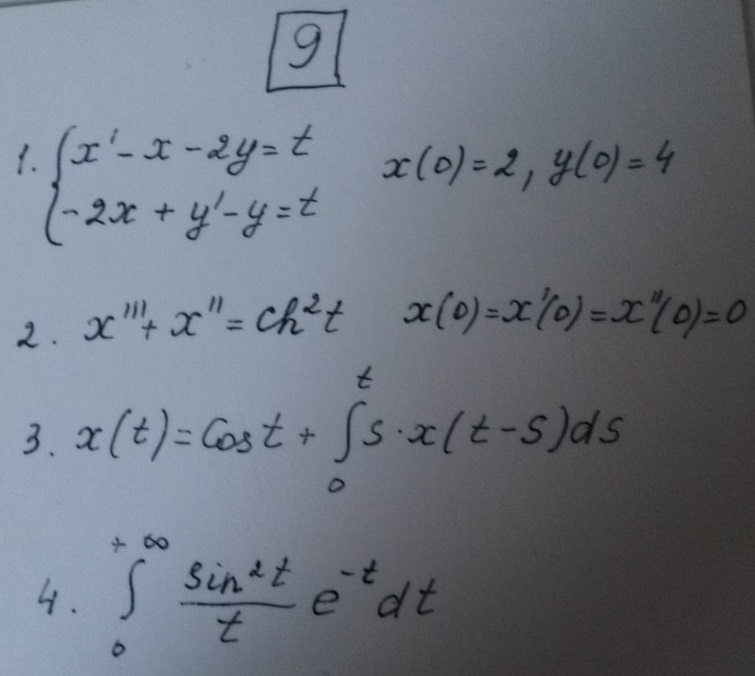 9
1. { x' - x - 2y = t
-2x + y' - y = t
x(0) = 2, y(0) = 4
2. x''' + x'' = ch²t x(0) = x'(0) = x''(0) = 0
3. x(t) = cos t + ∫₀ᵗ s · x(t - s) ds
4. ∫₀^{+∞} \frac{sin²t}{t} e^{-t} dt